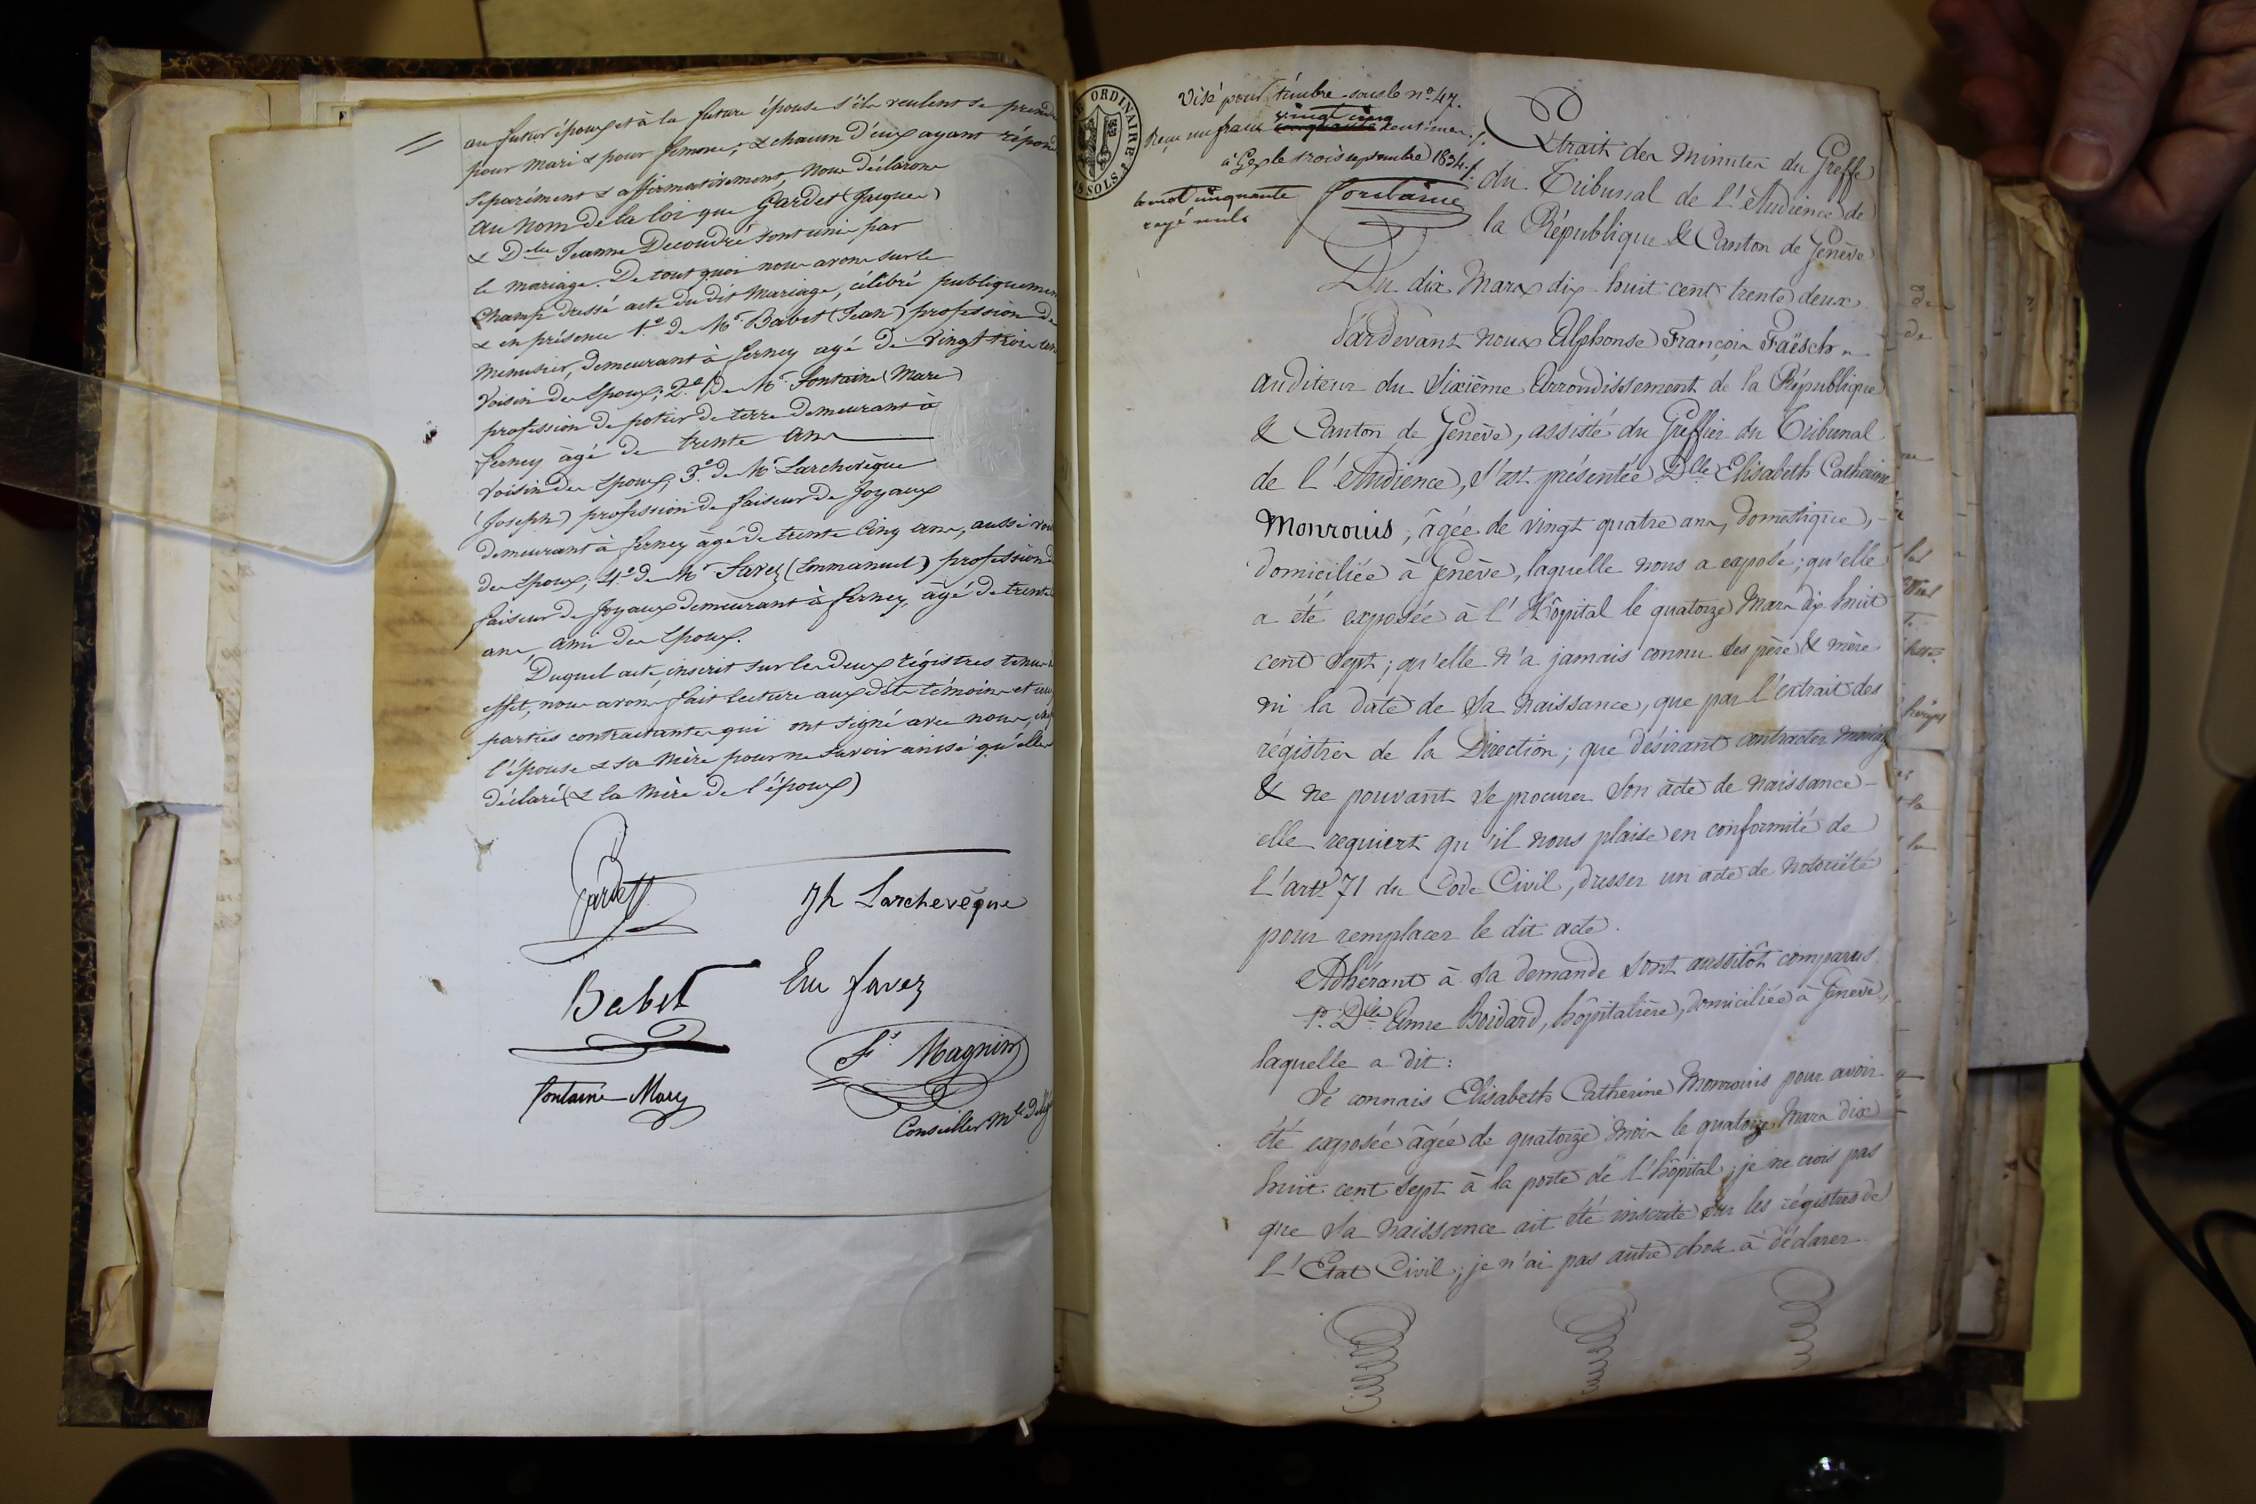 au futur époux et à la future épouse s'ils veulent se prendre
pour mari & pour femme; & chacun d'eux ayant répondu
séparément & affirmativement, Nous déclarons
au nom de la loi que Gardet (Jacques)
& Dlle Jeanne Decoudré sont unis par
le mariage. De tout quoi nous avons sur le
champ dressé acte du dit Mariage, célébré publiquement
& en présence 1º de Mr Babet (Jean) profession de
Menuisier, demeurant à Ferney agé de vingt trois ans
Voisin des époux; 2º de Mr Fontaine (Marc)
profession de potier de terre demeurant à
Ferney âgé de trente ans
Voisin des époux, 3º de Mr Larchevêque
(Joseph) profession de faiseur de Joyaux
demeurant à Ferney âgé de trente Cinq ans, aussi
des époux, 4º de Mr Favez (Emmanuel) profession
faiseur de Joyaux demeurant à Ferney, âgé de trente
ans ami des époux.
Duquel acte, inscrit sur les deux régistres tenus
effet, nous avons fait lecture aux dits témoins et aux
parties contractantes qui ont signé avec nous,
l'épouse & sa mère pour ne savoir ainsi qu'elles
déclaré (& la Mère de l'époux)
Gardet
Jh Larchevêque
Babet
Em favez
fontaine Marc
Fs Magnin
Conseiller Mal
ORDINAIRE
SOLS
Visé pour timbre sous le nº 47.
Reçu un franc vingt cinq centimes
cinquante
à Gex le trois septembre 1834.
le mot cinquante
rayé nul
Fontaine
Extrait des Minutes du Greffe
du Tribunal de l'Audience de
la République & Canton de Genève
Du dix Mars dix-huit cent trente deux
Pardevant nous Alphonse François Faësch
auditeur du Sixième Arrondissement de la République
& Canton de Genève, assisté du Greffier du Tribunal
de l'Audience, s'est présentée Dlle Elisabeth Catherine
Monrouis, âgée de vingt quatre ans, domestique,
domiciliée à Genève, laquelle nous a exposé; qu'elle
a été exposée à l'Hôpital le quatorze Mars dix huit
cent sept; qu'elle n'a jamais connu ses père & mère
ni la date de sa naissance, que par l'extrait des
régistres de la Direction; que désirant contracter mariage
& ne pouvant se procurer son acte de naissance
elle requiert qu'il nous plaise en conformité de
l'artt 71 du Code Civil, dresser un acte de notoriété
pour remplacer le dit acte.
Adhérant à sa demande sont aussitôt comparus
1º. Dlle Anne Boidard, hôpitalière, domiciliée à Genève,
laquelle a dit:
Je connais Elisabeth Catherine Monrouis pour avoir
été exposée âgée de quatorze mois le quatorze Mars dix
huit cent sept à la porte de l'hôpital; je ne crois pas
que sa naissance ait été inscrite sur les régistres de
l'Etat Civil; je n'ai pas autre chose à déclarer